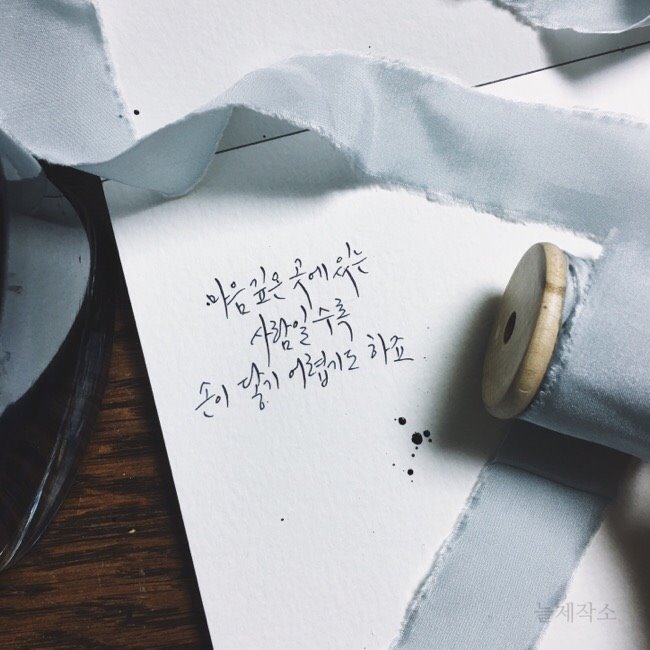 마음 깊은 곳에 있는
사람일 수록
손이 닿기 어렵기도 하죠
늘제작소